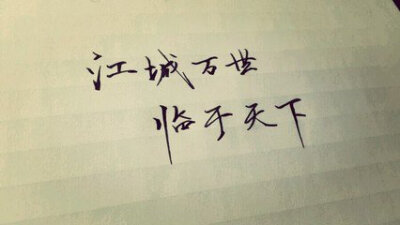 江城万世
临于天下